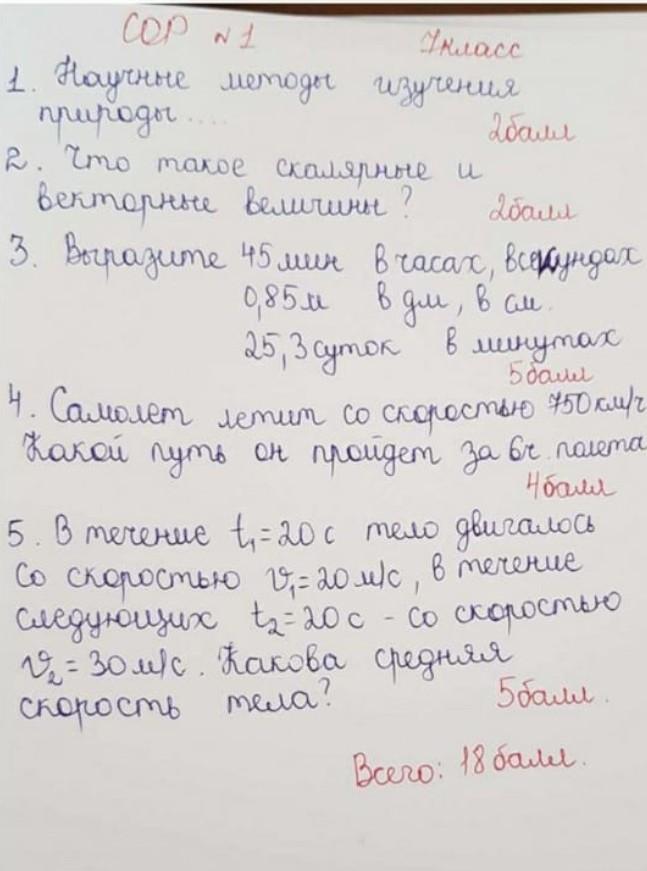 СОР №1 7класс
1. Научные методы изучения
природы....
2балл
2. Что такое скалярные и
векторные величины? 2балл
3. Выразите 45мин в часах, в секундах
0,85м в дм, в см.
25,3суток в минутах
5балл
4. Самолет летит со скоростью 750км/ч
Какой путь он пройдет за 6ч. полета
4балл
5. В течение t₁=20с тело двигалось
со скоростью v₁=20м/с, в течение
следующих t₂=20с - со скоростью
v₂=30м/с. Какова средняя
скорость тела? 5балл.
Всего: 18балл.